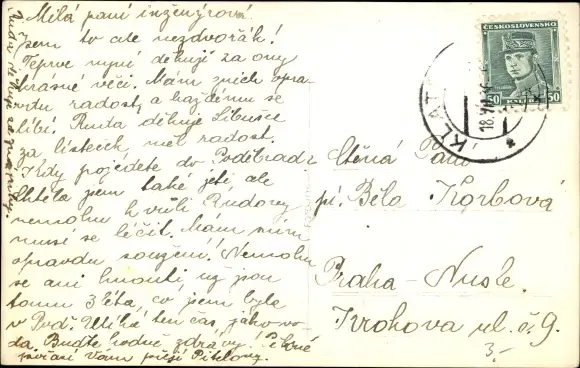 Milá paní inženýrová
Jsem to ale nezdvořák!
Teprve nyní děkuji za ony
krásné věci. Mám z nich opra-
vdu radost, a každému se
líbí. Ruda děkuje Libušce
za lísteček, měl radost.
Kdy pojedete do Poděbrad?
Chtěla jsem také jeti, ale
nemohu k vůli Rudovy
musí se léčit. Mám s ním
opravdu soužení! Nemohu
se ani hnouti už jsou
tomu 3 léta, co jsem byla
v Poď. Utíká ten čas, jako vo-
da. Buďte hodně zdrávy! Pěkné
počasí Vám přejí
Ruda děkuje za
ČESKOSLOVENSKO
50 50
KLAT
18.VII.36
Ctěná Paní
pí. Běla Korbová
Praha-Nusle.
Krokova ul. č. 9.
3.-